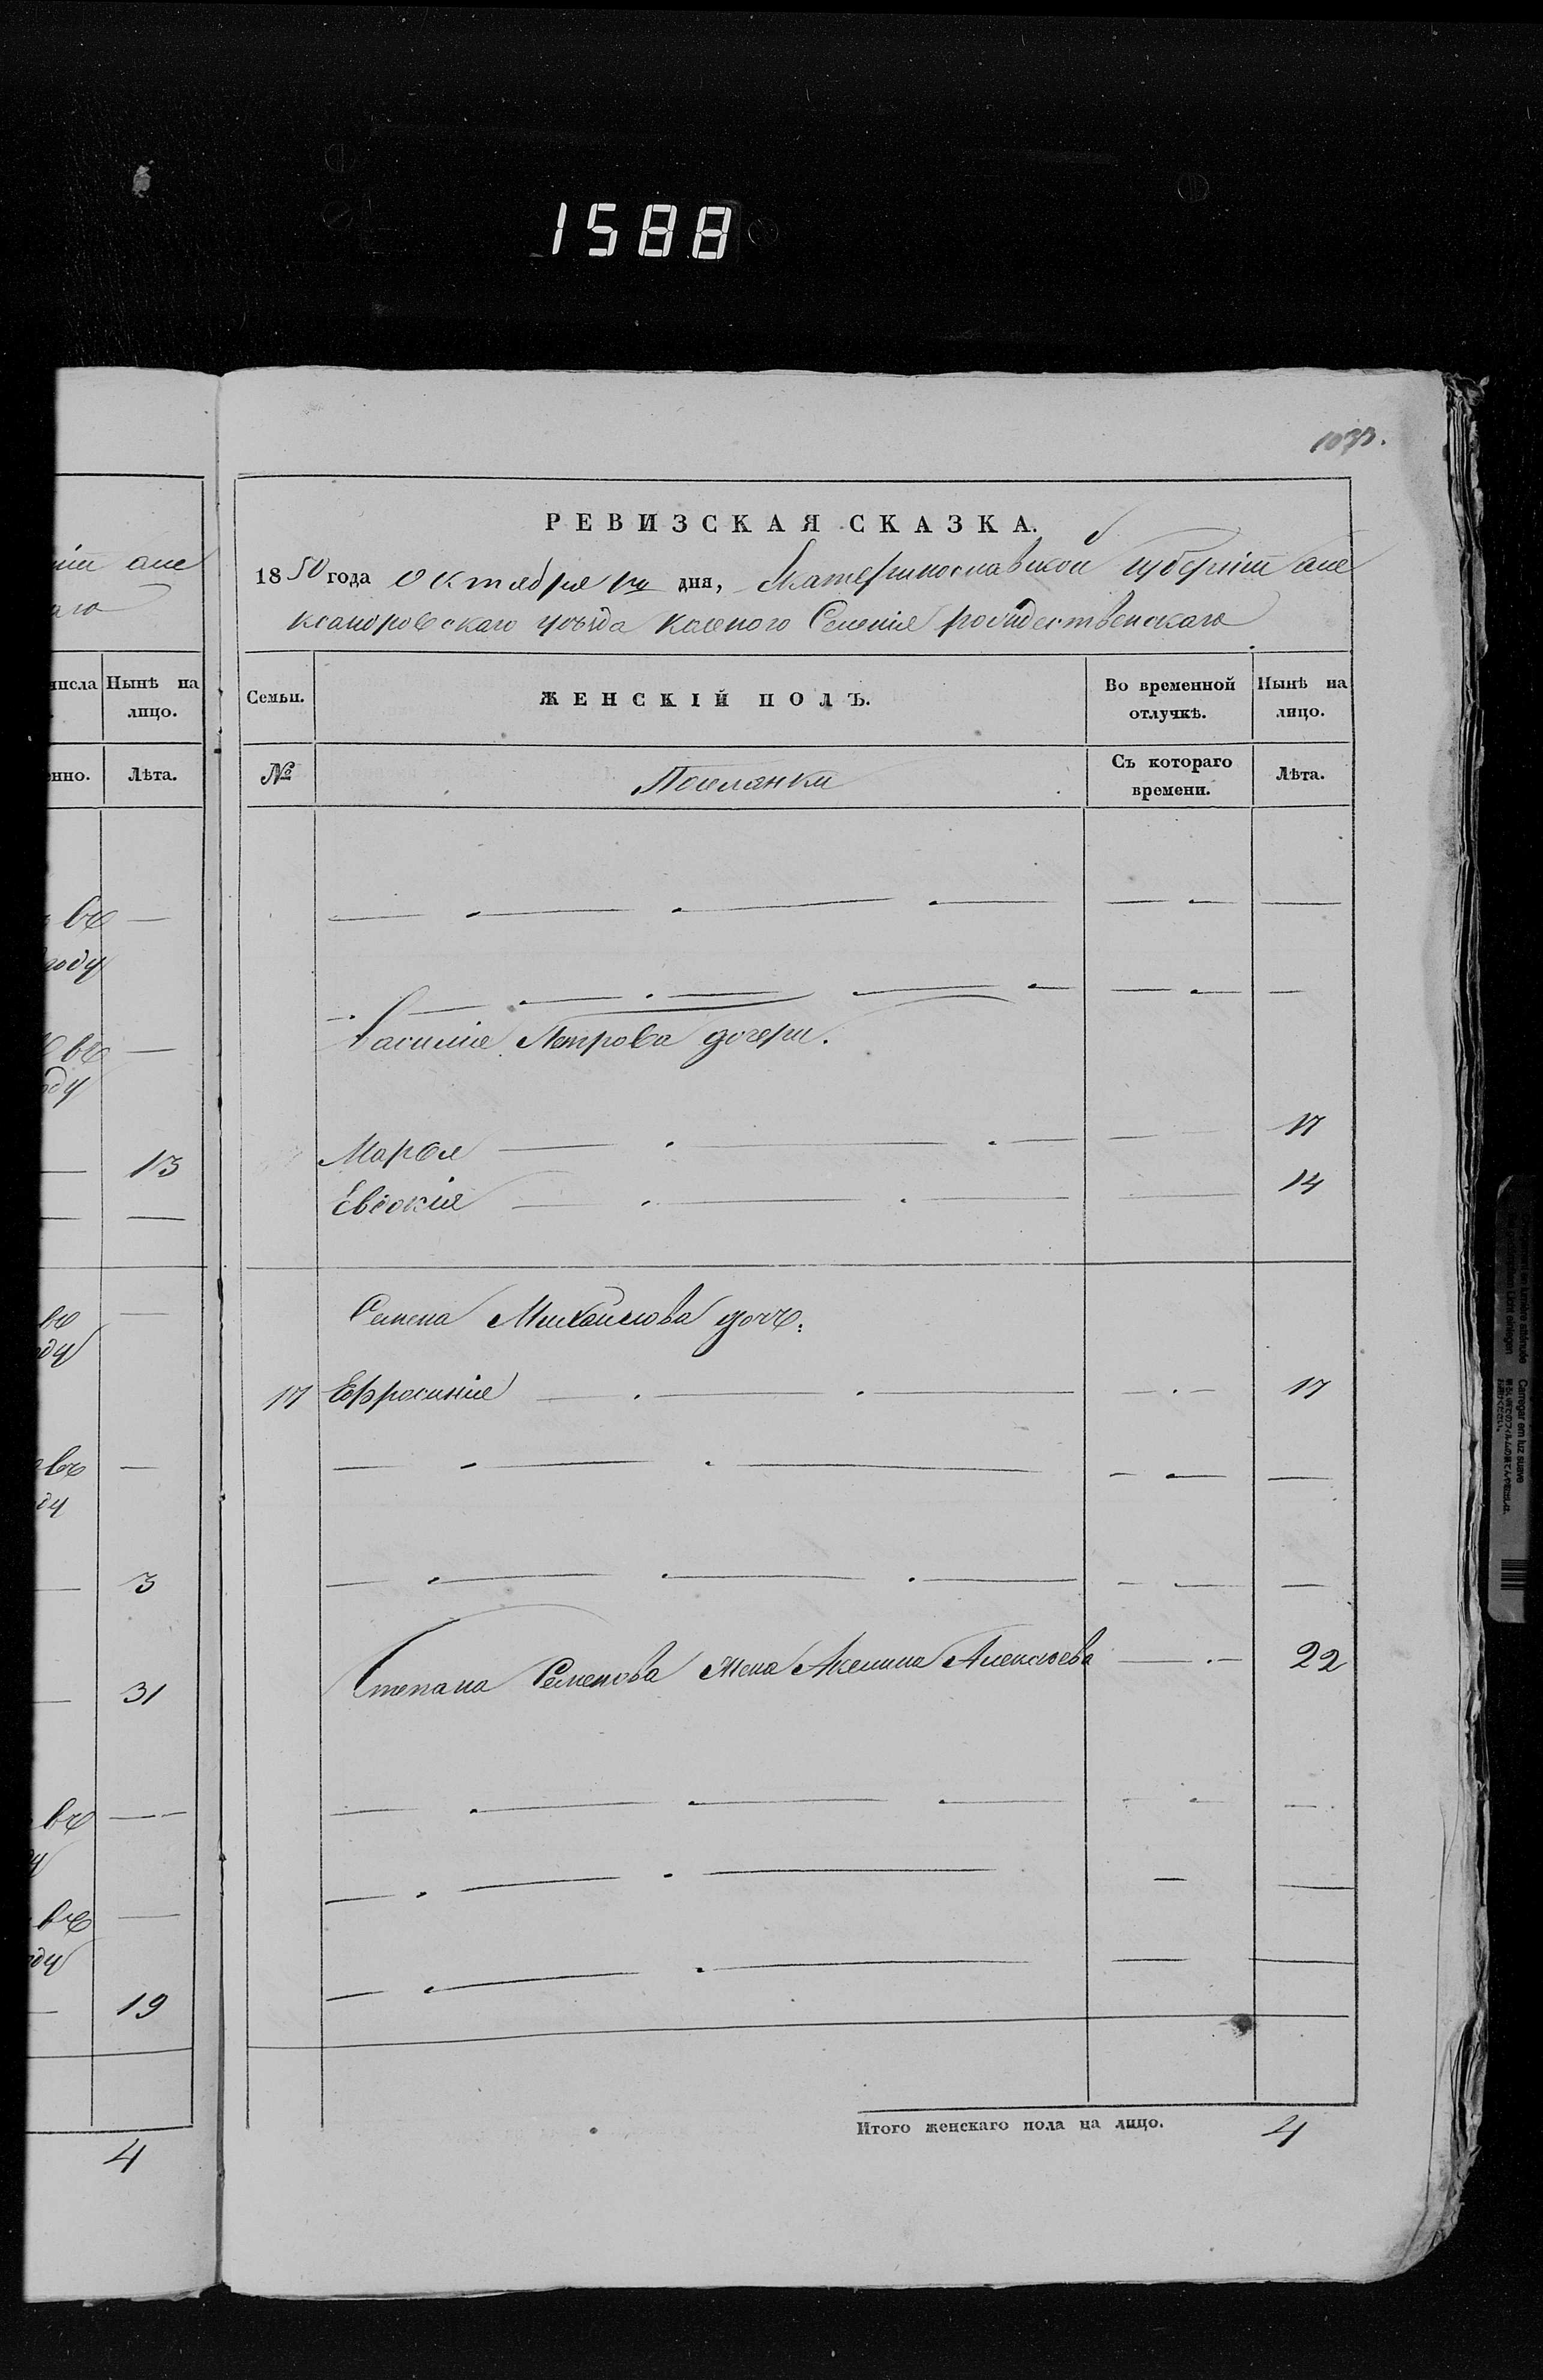 1588
РЕВИЗСКАЯ СКАЗКА.
1850 года Октября 1го дня, Екатеринославской губерніи Але
ксандровскаго уѣзда казеного Селенія рождественскаго
Семьи. ЖЕНСКІЙ ПОЛЪ. Во временной отлучкѣ. Нынѣ на лицо.
№ Поселянки Съ котораго времени. Лѣта.
Василія Петрова дочери.
Марѳа 17
Евдокія 14
Семена Михайлова дочь:
17 Ефросинія 17
Степана Семенова жена Акелина Алексѣева 22
Итого женскаго пола на лицо. 4
Нынѣ на лицо.
Лѣта.
въ
году
въ
13
въ
въ
3
31
въ
въ
19
4